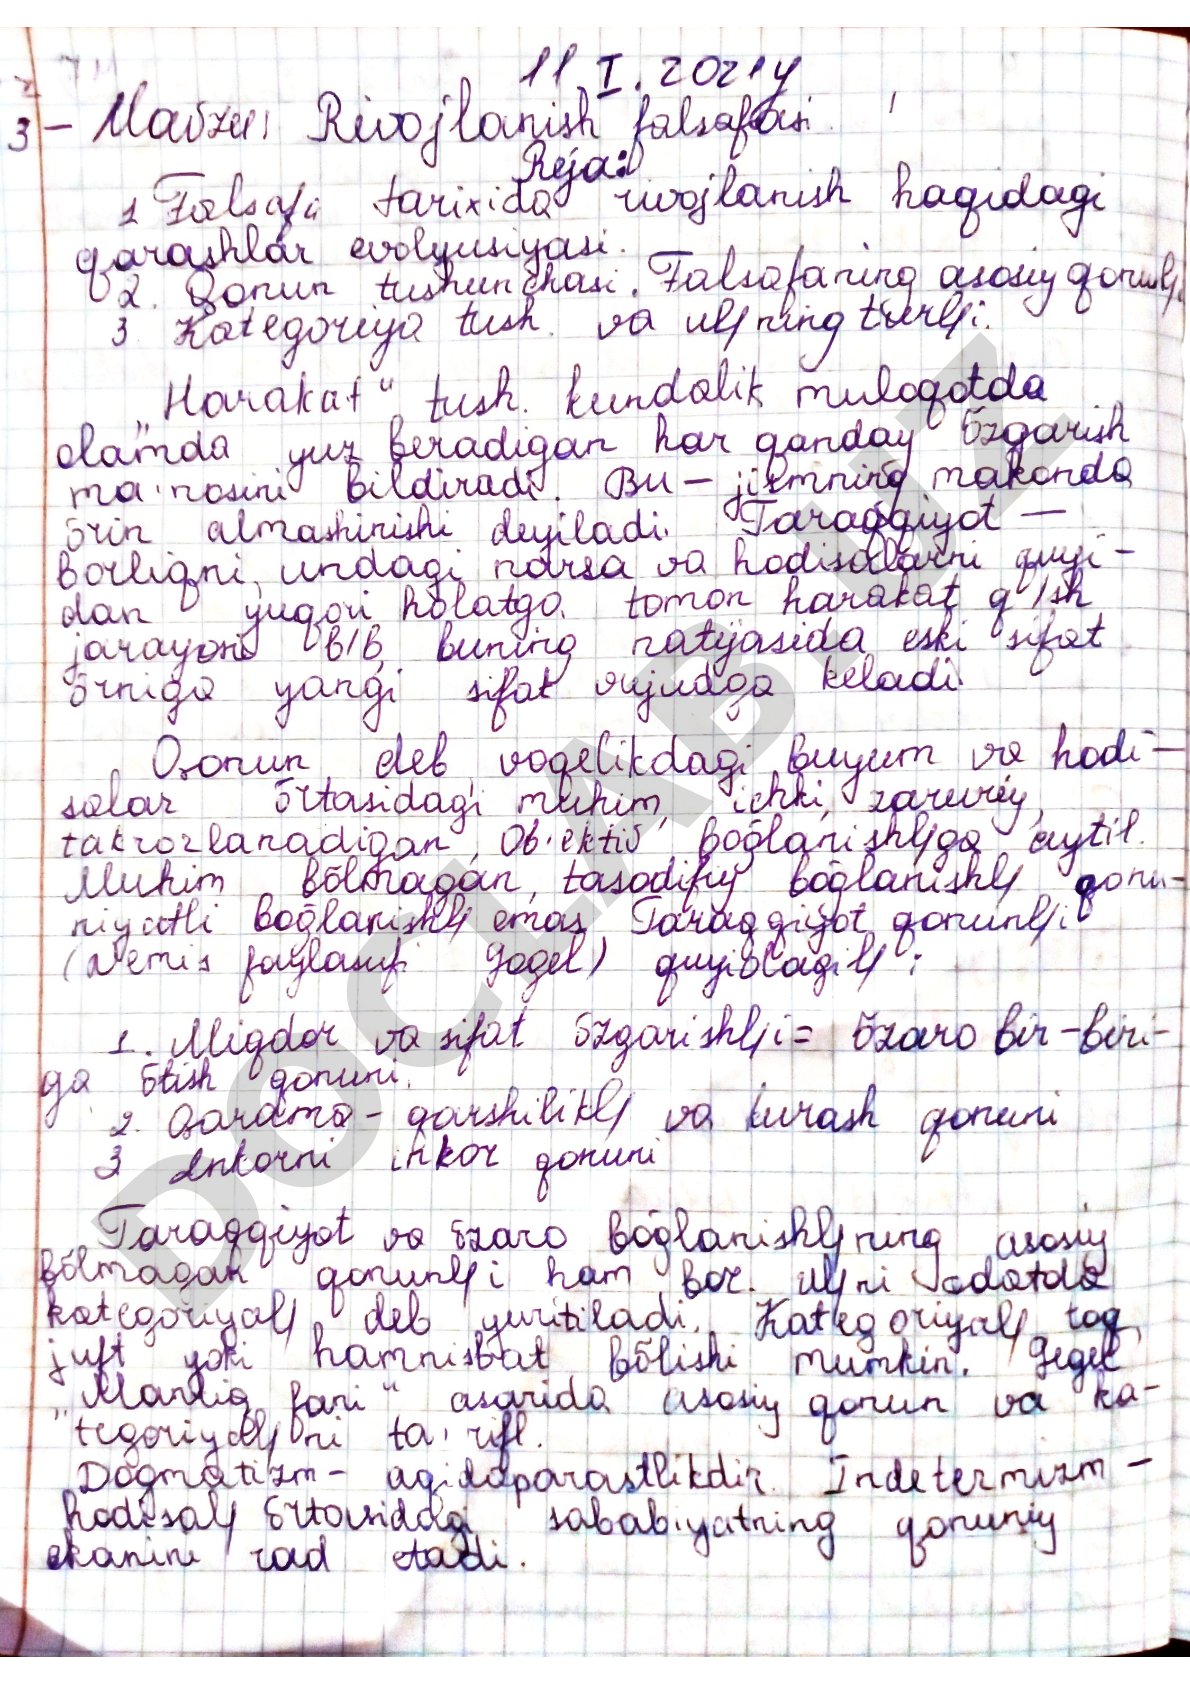 11. I. 2021y
3 - Mavzu: Rivojlanish falsafasi.
Reja:
1 Falsafa tarixida rivojlanish haqidagi
qarashlar evolyusiyasi.
2. Qonun tushunchasi. Falsafaning asosiy qonunl/i
3 Kategoriya tush. va ul/ning turl/i.
„Harakat“ tush. kundalik muloqotda
olamda yuz beradigan har qanday õzgarish
ma'nosini bildiradi. Bu – jismning makonda
õrin almashinishi deyiladi. Taraqqiyot —
borliqni, undagi narsa va hodisalarni quyi-
dan yuqori holatga tomon harakat q/sh
jarayoni b/b, buning natijasida eski sifat
õrniga yangi sifat vujudga keladi.
Qonun deb voqelikdagi buyum va hodi-
salar õrtasidagi muhim, ichki, zaruriy,
takrorlanadigan, ob'ektiv boõlanishl/ga aytil.
Muhim bõlmagan, tasodifiy bõglanishl/ qonu-
niyatli boõglanishl/ emas. Taraqqiyot qonunl/i
(nemis faylasuf Gegel) quyidagil/:
1. Miqdor va sifat õzgarishl/i = õzaro bir-biri-
ga õtish qonuni.
2. Qarama-qarshilikl/ va kurash qonuni
3 Inkorni inkor qonuni
Taraqqiyot va õzaro bõglanishl/ning asosiy
bõlmagan qonunl/i ham bor. ul/ni odatda
kategoriyal/ deb yuritiladi. Kategoriyal/ toq,
juft yoki hamnisbat bõlishi mumkin. Gegel
„Mantiq fani“ asarida asosiy qonun va ka-
tegoriyal/ni ta'rifl.
Dogmatizm- aqidaparastlikdir. Indetermizm -
hodisal/ õrtasidagi sababiyatning qonuniy
ekanini rad etadi.
DOCLAB.UZ